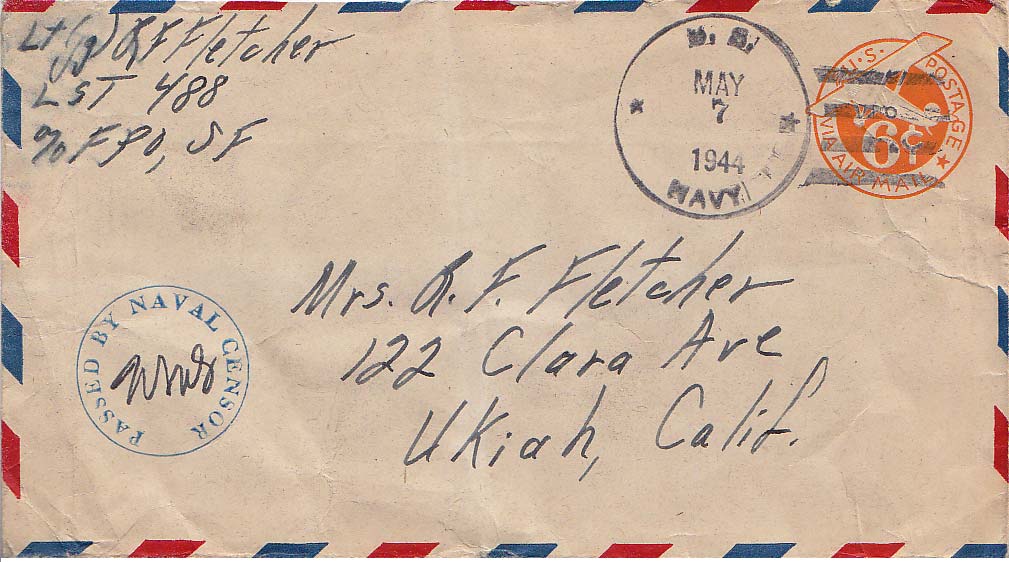 Lt (jg) R F Fletcher
LST 488
c/o FPO, SF
U. S.
MAY
7
1944
NAVY
U.S. POSTAGE
6¢
VIA AIR MAIL
PASSED BY NAVAL CENSOR
Mrs. R. F. Fletcher
122 Clara Ave
Ukiah, Calif.